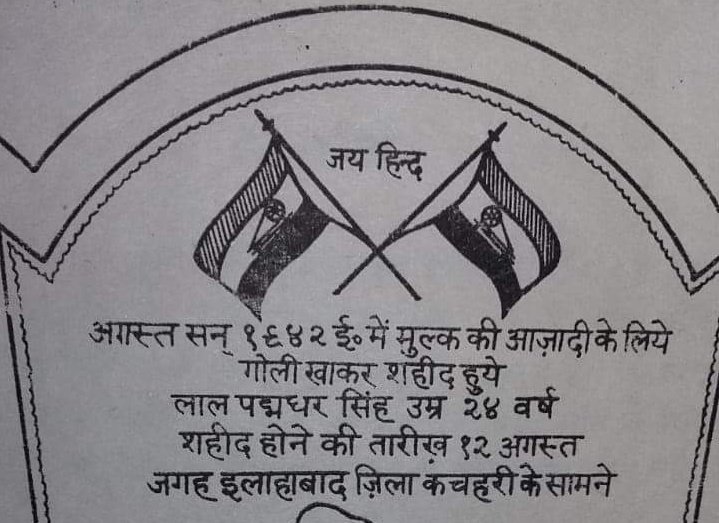 जय हिन्द
अगस्त सन् १९४२ ई० में मुल्क की आज़ादी के लिये
गोली खाकर शहीद हुये
लाल पद्मधर सिंह उम्र २४ वर्ष
शहीद होने की तारीख़ १२ अगस्त
जगह इलाहाबाद ज़िला कचहरी के सामने